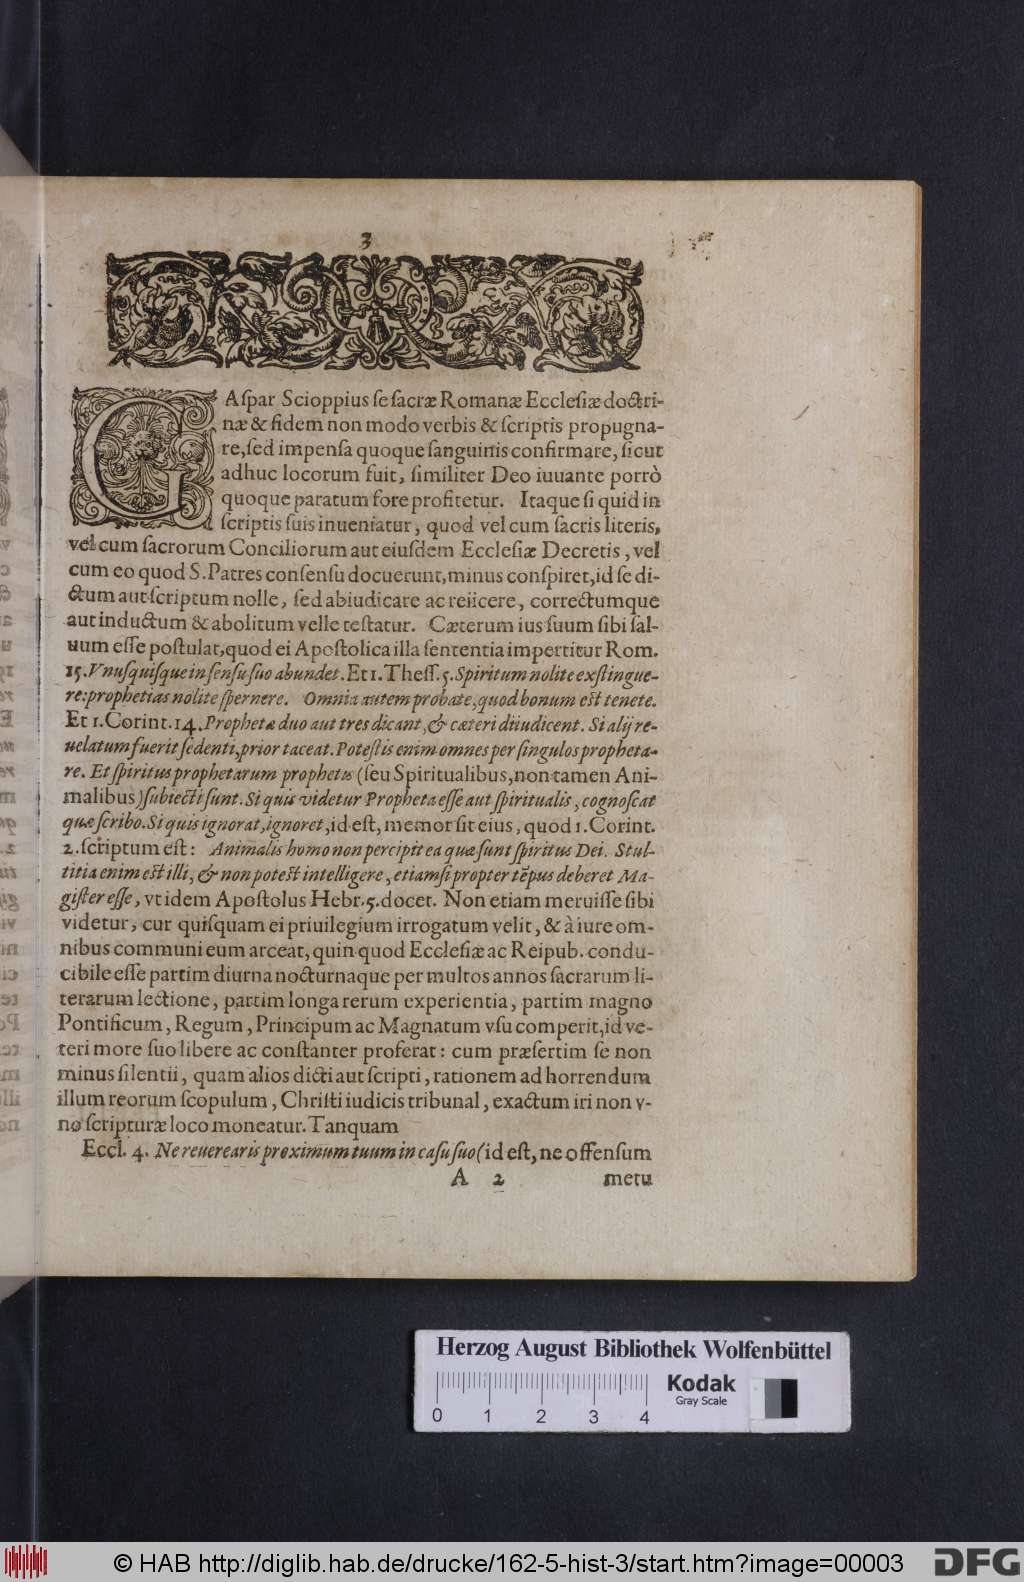 3
GAſpar Scioppius ſe ſacræ Romanæ Eccleſiæ doctri-
næ & fidem non modo verbis & ſcriptis propugna-
re, ſed impenſa quoque ſanguinis confirmare, ſicut
adhuc locorum fuit, ſimiliter Deo iuuante porrò
quoque paratum fore profitetur. Itaque ſi quid in
ſcriptis ſuis inueniatur, quod vel cum ſacris literis,
vel cum ſacrorum Conciliorum aut eiuſdem Eccleſiæ Decretis, vel
cum eo quod S. Patres conſenſu docuerunt, minus conſpiret, id ſe di-
ctum aut ſcriptum nolle, ſed abiudicare ac reiicere, correctumque
aut inductum & abolitum velle teſtatur. Cæterum ius ſuum ſibi ſal-
uum eſſe poſtulat, quod ei Apoſtolica illa ſententia impertitur Rom.
15. Vnuſquiſque in ſenſu ſuo abundet. Et 1. Theſſ. 5. Spiritum nolite exſtingue-
re: prophetias nolite ſpernere. Omnia autem probate, quod bonum eſt tenete.
Et 1. Corint. 14. Prophetæ duo aut tres dicant, & cæteri diiudicent. Si alij re-
uelatum fuerit ſedenti, prior taceat. Poteſtis enim omnes per ſingulos propheta-
re. Et ſpiritus prophetarum prophetis (ſeu Spiritualibus, non tamen Ani-
malibus) ſubiecti ſunt. Si quis videtur Propheta eſſe aut ſpiritualis, cognoſcat
quæ ſcribo. Si quis ignorat, ignoret, id eſt, memor ſit eius, quod 1. Corint.
2. ſcriptum eſt: Animalis homo non percipit ea quæ ſunt ſpiritus Dei. Stul-
titia enim eſt illi, & non poteſt intelligere, etiamſi propter tẽpus deberet Ma-
giſter eſſe, vt idem Apoſtolus Hebr. 5. docet. Non etiam meruiſſe ſibi
videtur, cur quiſquam ei priuilegium irrogatum velit, & à iure om-
nibus communi eum arceat, quin quod Eccleſiæ ac Reipub. condu-
cibile eſſe partim diurna nocturnaque per multos annos ſacrarum li-
terarum lectione, partim longa rerum experientia, partim magno
Pontificum, Regum, Principum ac Magnatum vſu comperit, id ve-
teri more ſuo libere ac conſtanter proferat: cum præſertim ſe non
minus ſilentii, quam alios dicti aut ſcripti, rationem ad horrendum
illum reorum ſcopulum, Chriſti iudicis tribunal, exactum iri non v-
no ſcripturæ loco moneatur. Tanquam
Eccl. 4. Ne reuerearis proximum tuum in caſu ſuo (id eſt, ne offenſum
A 2 metu
Herzog August Bibliothek Wolfenbüttel
Kodak
Gray Scale
0 1 2 3 4
© HAB http://diglib.hab.de/drucke/162-5-hist-3/start.htm?image=00003
DFG